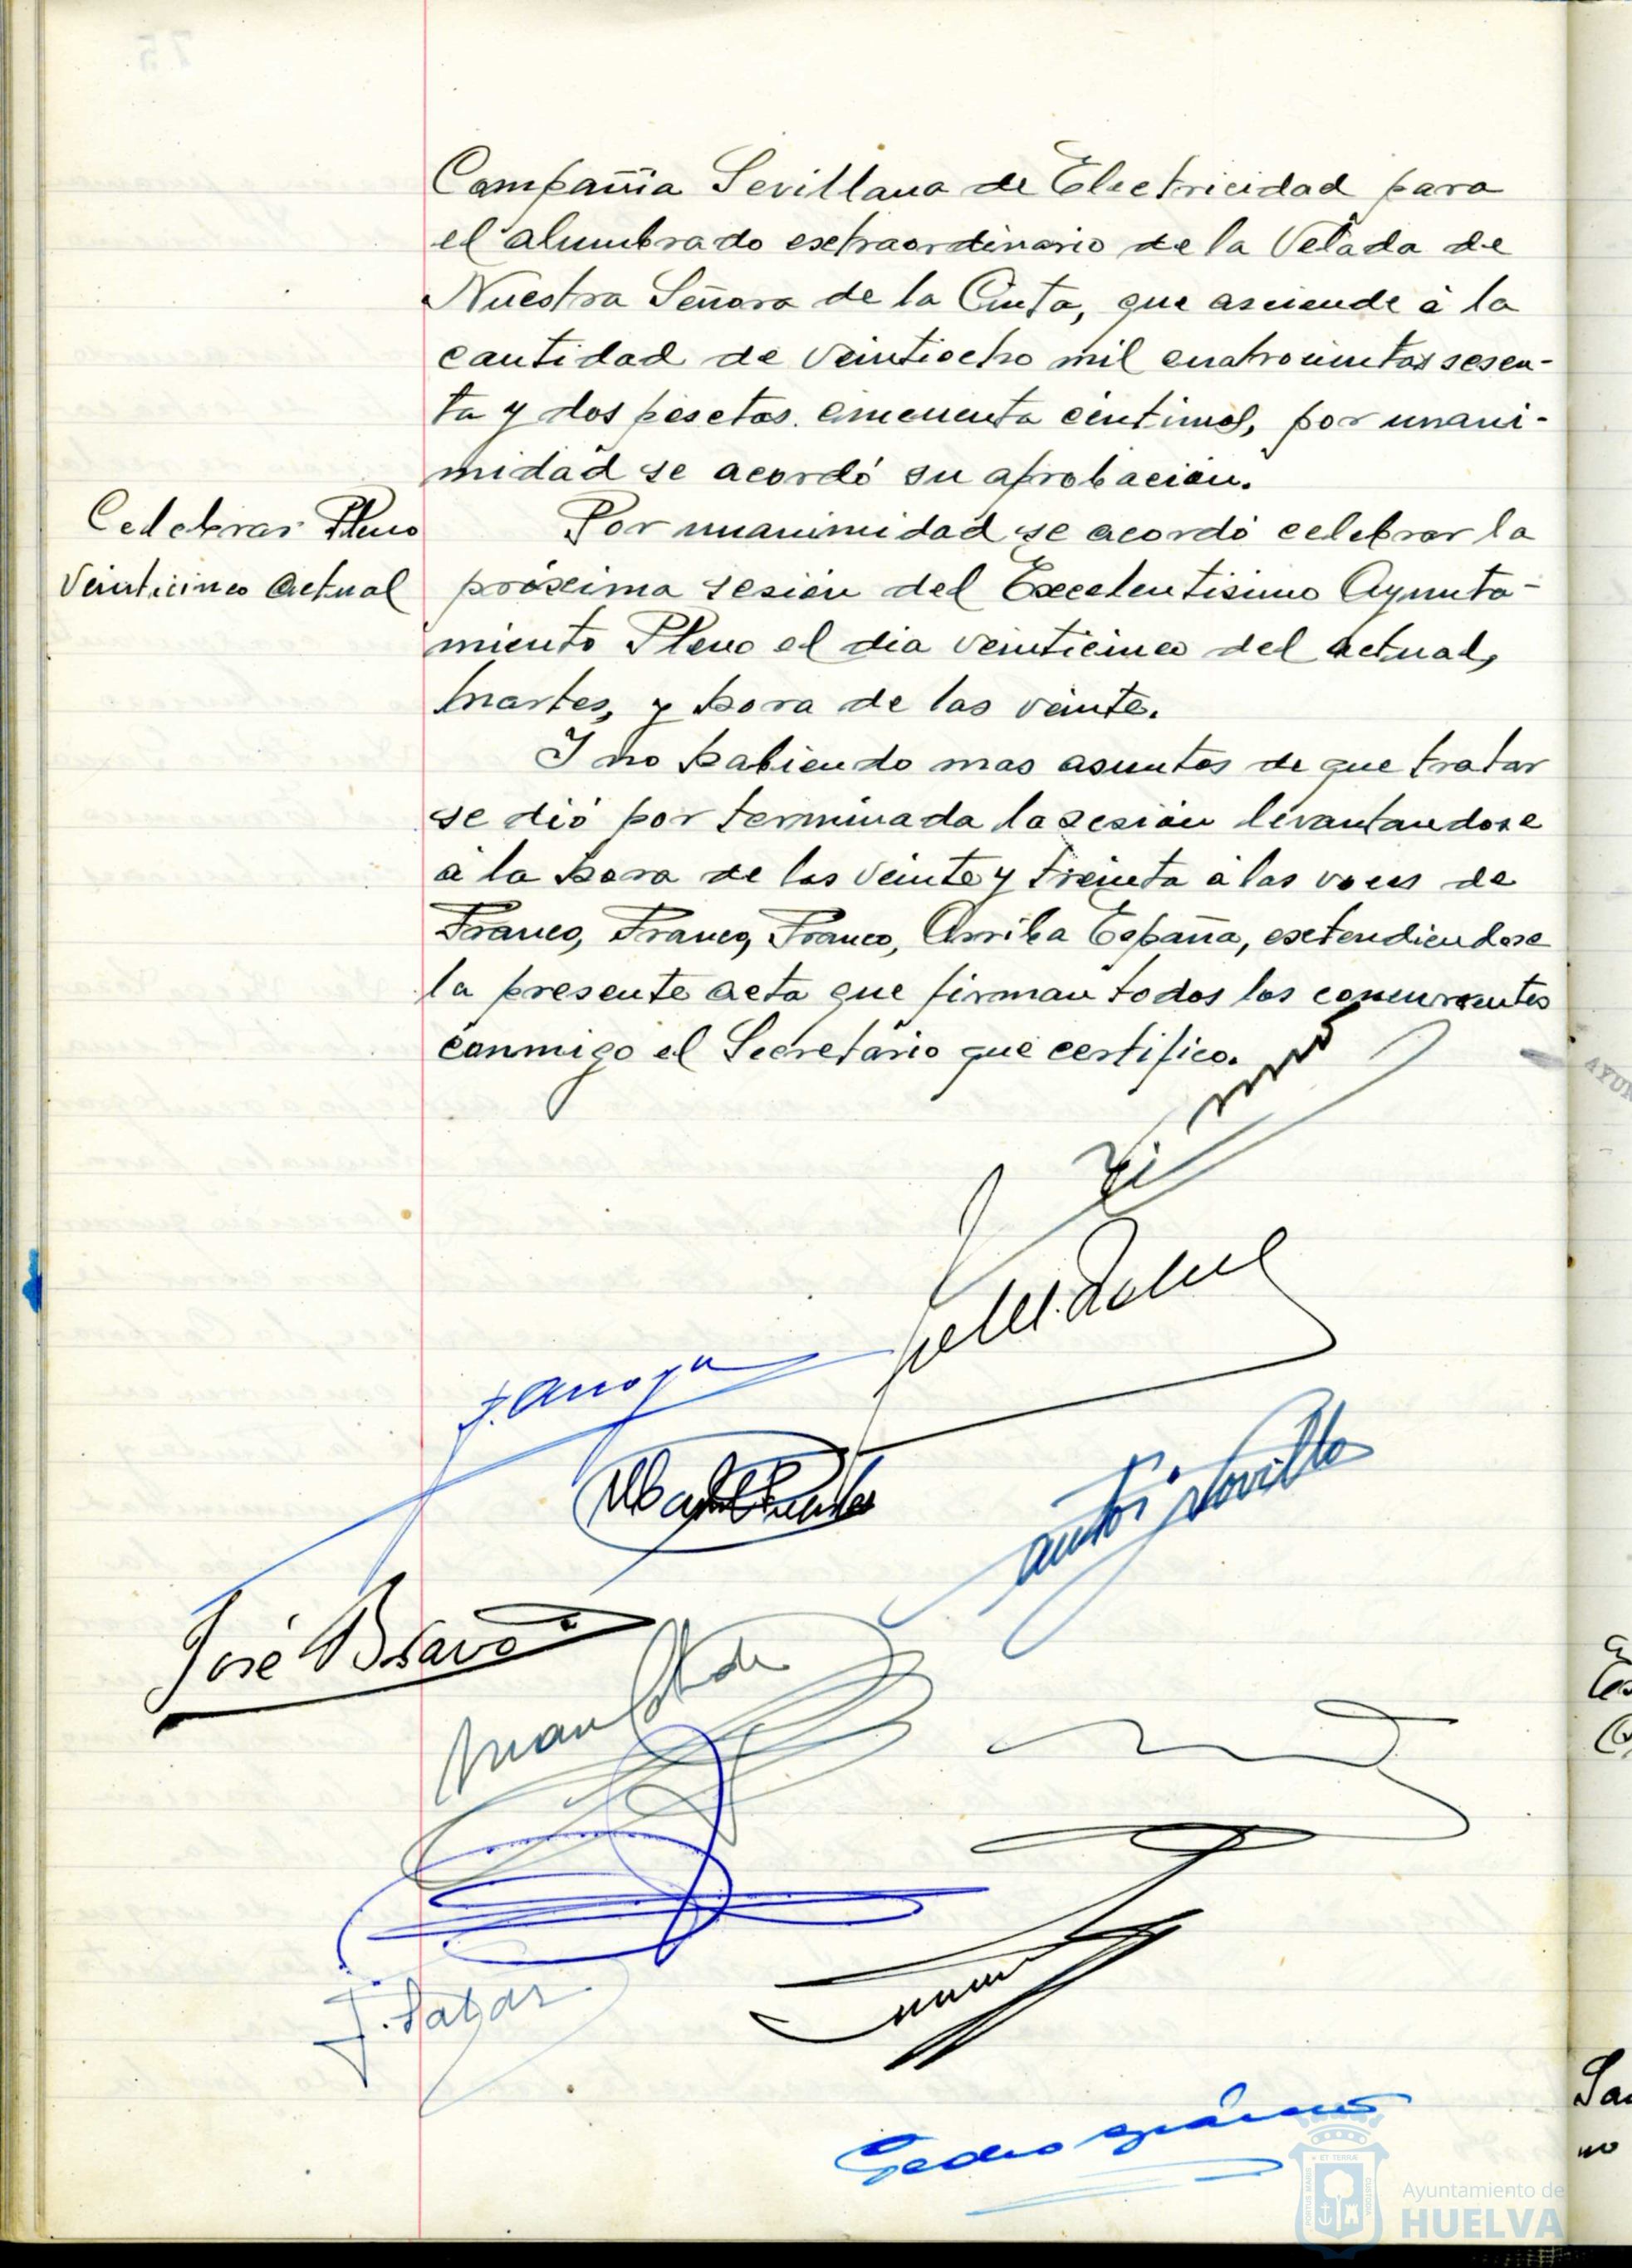 Compañia Sevillana de Electricidad para
el alumbrado extraordinario de la Velada de
Nuestra Señora de la Cinta, que asciende à la
cantidad de veintiocho mil cuatrocientas sesen-
ta y dos pesetas cincuenta céntimos, por unani-
midad se acordó su aprobación.
Celebrar Pleno
veinticinco actual
Por unanimidad se acordó celebrar la
próxima sesión del Excelentisimo Ayunta-
miento Pleno el dia veinticinco del actual,
martes, y hora de las veinte.
Y no habiendo mas asuntos de que tratar
se dió por terminada la sesión levantandose
à la hora de las veinte y treinta à las voces de
Franco, Franco, Franco, Arriba España, extendiendose
la presente acta que firman todos los concurrentes
conmigo el Secretario que certifico.
José Bravo
Ayuntamiento de
HUELVA